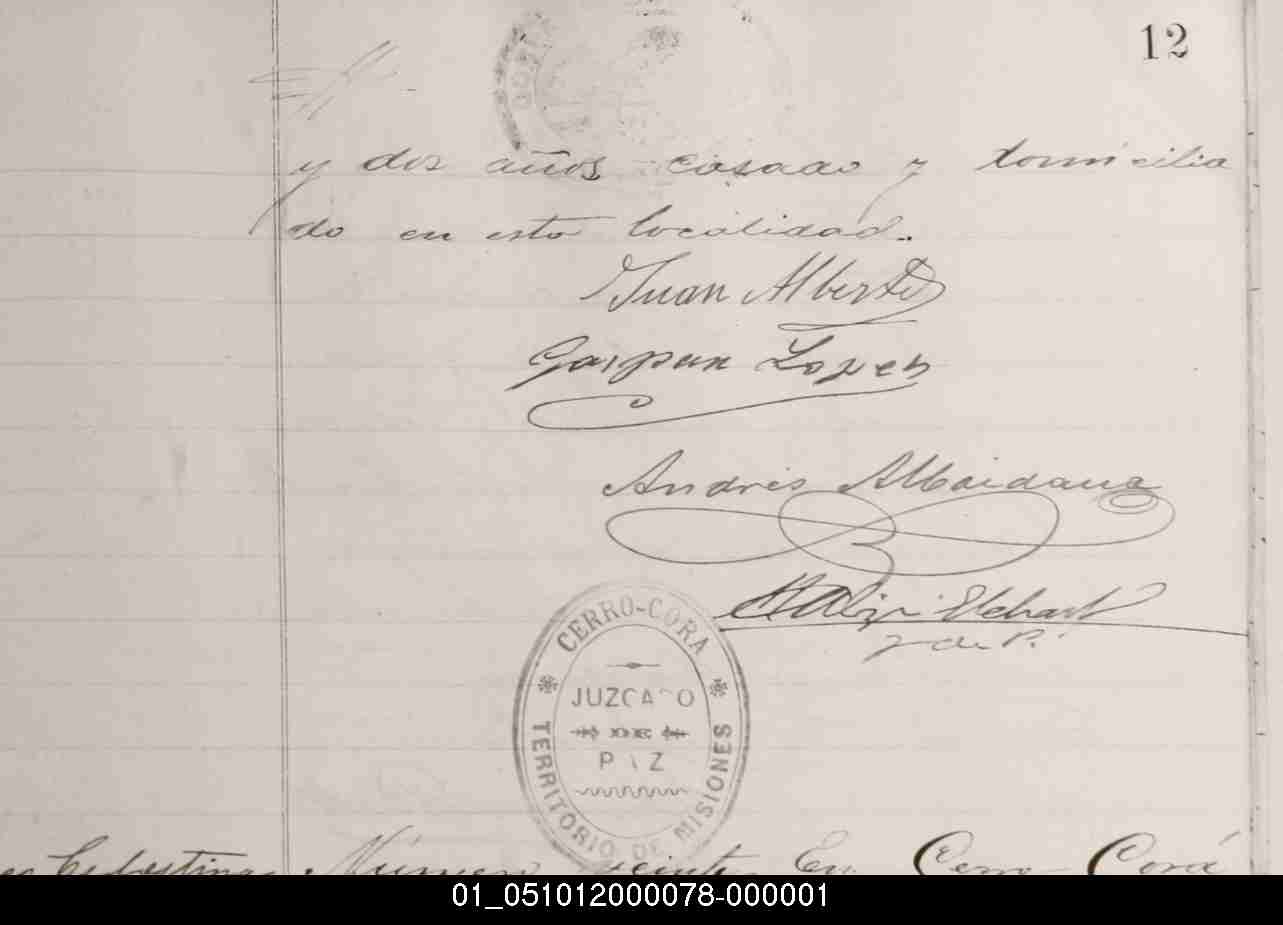 12
y dos años casado y domicilia
do en esta localidad.
Juan Alberto
Gaspar Lopez
Andrés Maidana
J de P.
CERRO-CORA
JUZGADO
DE
PAZ
TERRITORIO DE MISIONES
Celestina
Número veinte En Cerro Corá
01_051012000078-000001